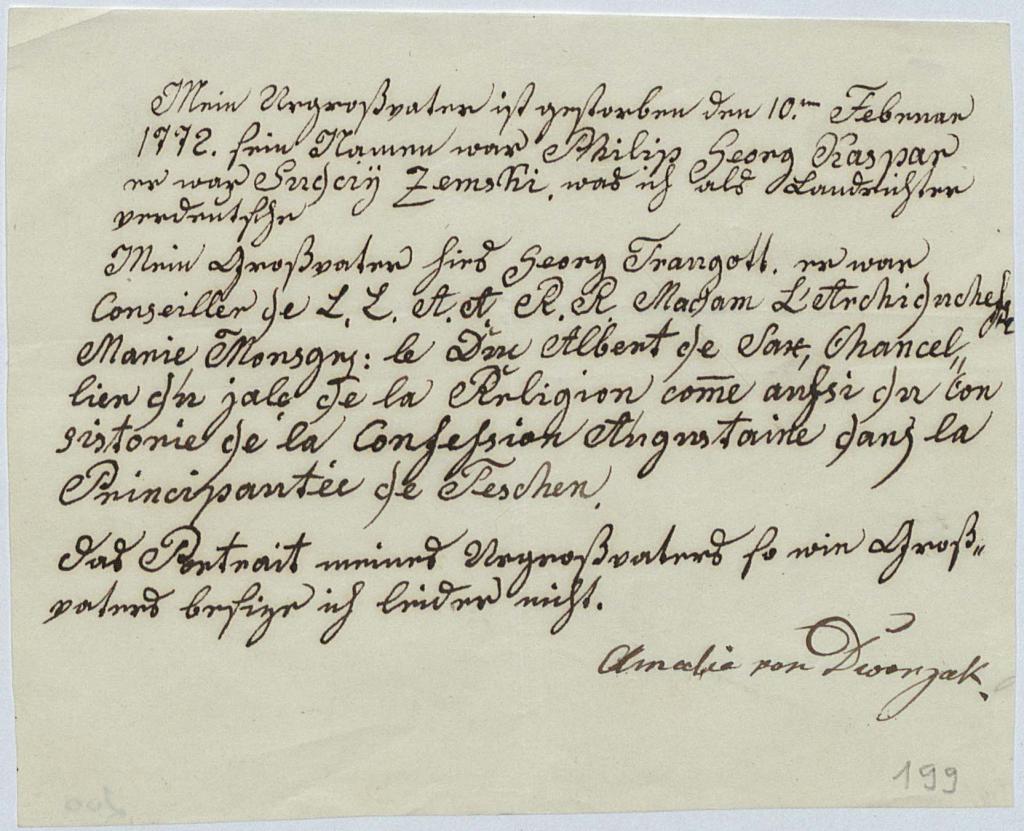 Mein Urgroßvater ist gestorben den 10.ten Februar
1772. sein Namen war Philip Georg Kaspar
er war Sudciÿ Zemski, was ich als Landrichter
verdeutsche
Mein Großvater hies Georg Traugott. er war
Conseiller de L. L. A. A. R. R. Madam L'Archiduchesse
Marie, Monsgnr: le Duc Albert de Sax, Chancel„
lier du jale de la Religion com̄e aussi du Con
sistorie de la Confession Augustaine dans la
Principautée de Teschen.
das Portrait meines Urgroßvaters so wie Groß„
vaters besize ich leider nicht.
Amalia von Dworzak.
199